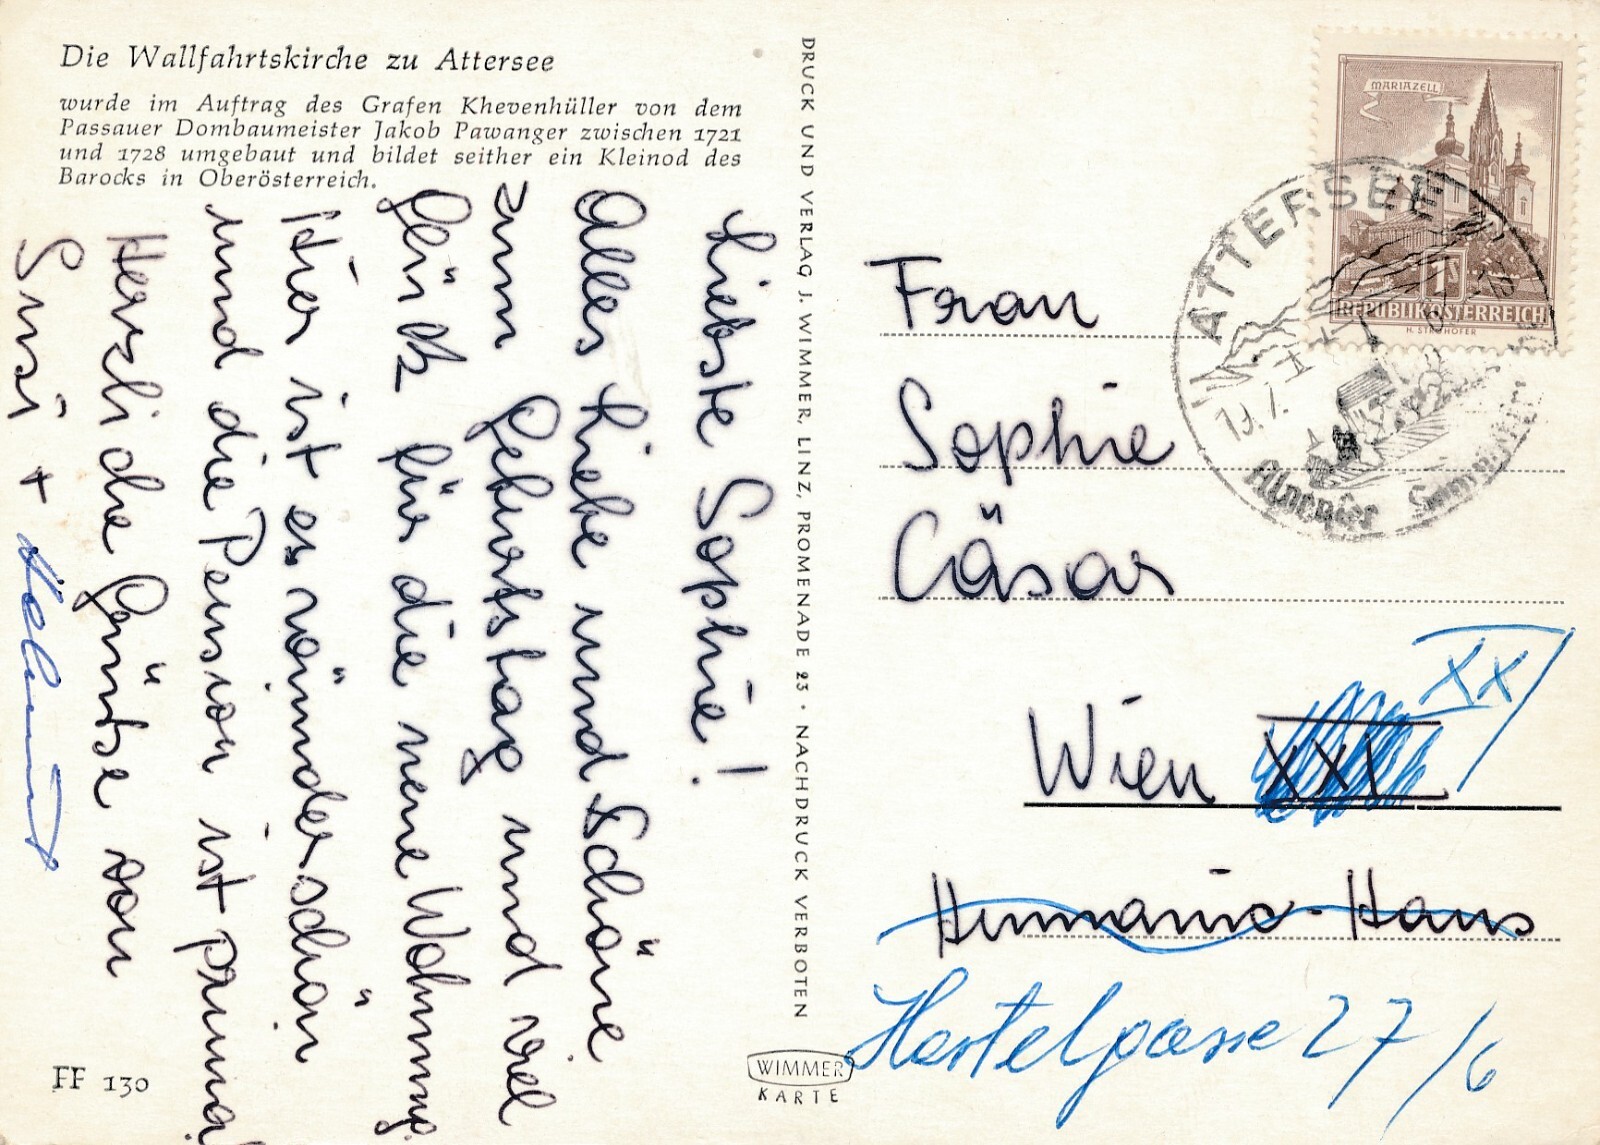 Die Wallfahrtskirche zu Attersee
wurde im Auftrag des Grafen Khevenhüller von dem
Passauer Dombaumeister Jakob Pawanger zwischen 1721
und 1728 umgebaut und bildet seither ein Kleinod des
Barocks in Oberösterreich.
Liebste Sophie!
Alles Liebe und Schöne
zum Geburtstag und viel
Glück für die neue Wohnung.
Hier ist es wunderschön
und die Pension ist prima!
Herzliche Grüße von
Susi + Helmut
FF 130
DRUCK UND VERLAG J. WIMMER, LINZ, PROMENADE 23 · NACHDRUCK VERBOTEN
WIMMER
KARTE
MARIAZELL
1S
REPUBLIK ÖSTERREICH
ATTERSEE
Frau
Sophie
Cäsar
XX
Wien XXI
Hummanic-Haus
Hostelgasse 27/6